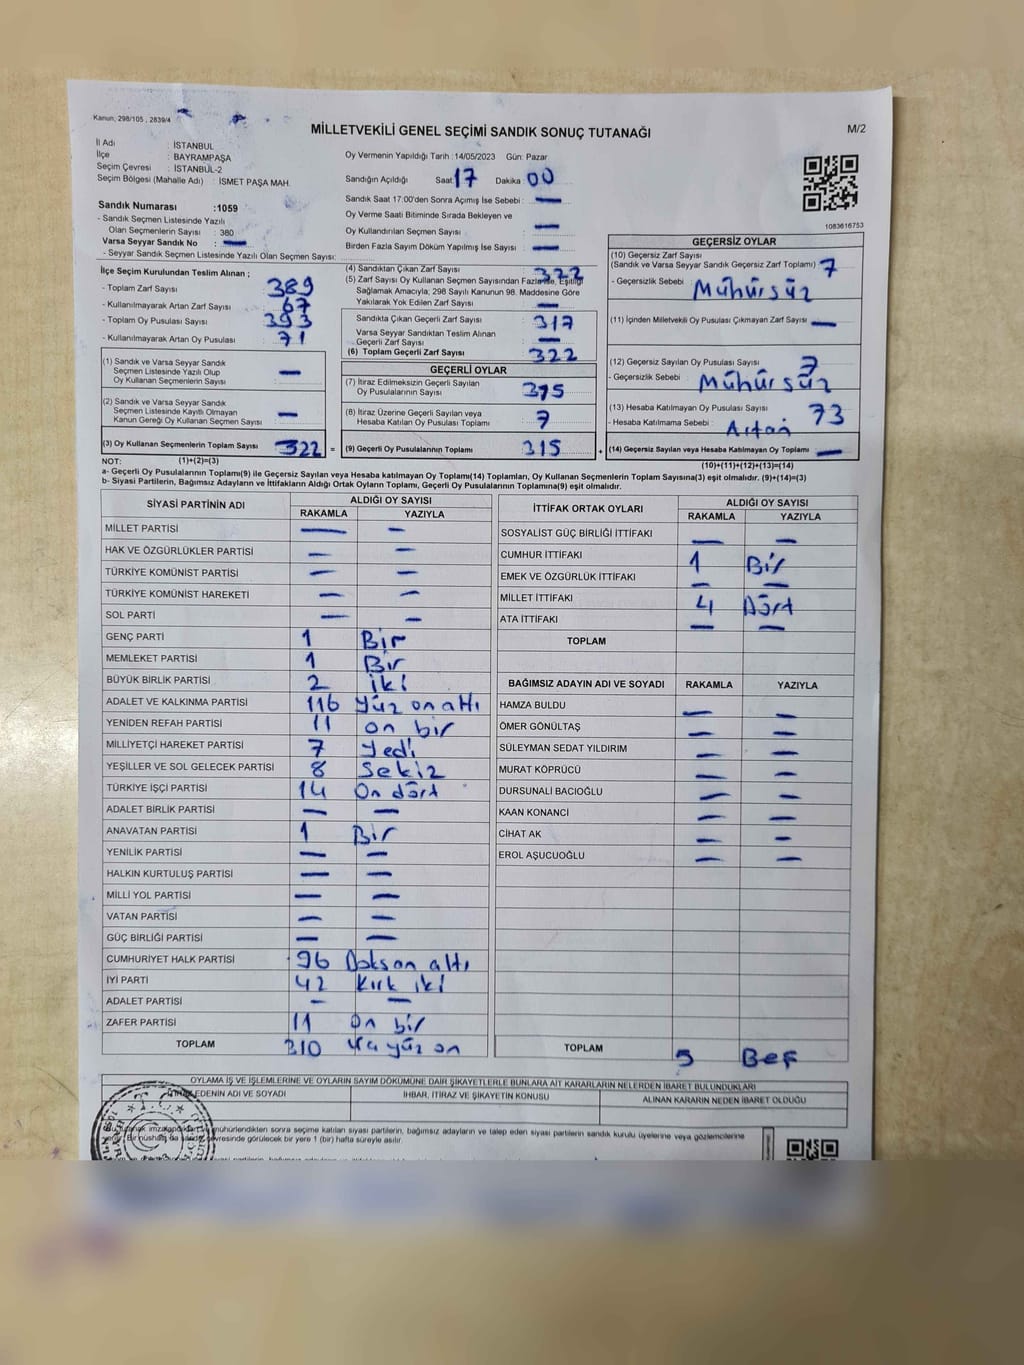 Kanun, 298/105 , 2839/4
MİLLETVEKİLİ GENEL SEÇİMİ SANDIK SONUÇ TUTANAĞI
M/2
İl Adı : İSTANBUL
İlçe : BAYRAMPAŞA
Seçim Çevresi : İSTANBUL-2
Seçim Bölgesi (Mahalle Adı) : İSMET PAŞA MAH.
Sandık Numarası :1059
- Sandık Seçmen Listesinde Yazılı
Olan Seçmenlerin Sayısı : 380
Varsa Seyyar Sandık No : —
- Seyyar Sandık Seçmen Listesinde Yazılı Olan Seçmen Sayısı:
Oy Vermenin Yapıldığı Tarih :14/05/2023 Gün: Pazar
Sandığın Açıldığı Saat 17 Dakika 00
Sandık Saat 17:00'den Sonra Açımış İse Sebebi : —
Oy Verme Saati Bitiminde Sırada Bekleyen ve
Oy Kullandırılan Seçmen Sayısı : —
Birden Fazla Sayım Döküm Yapılmış İse Sayısı : —
1083616753
İlçe Seçim Kurulundan Teslim Alınan ;
- Toplam Zarf Sayısı : 389
- Kullanılmayarak Artan Zarf Sayısı : 67
- Toplam Oy Pusulası Sayısı : 393
- Kullanılmayarak Artan Oy Pusulası : 71
(1) Sandık ve Varsa Seyyar Sandık
Seçmen Listesinde Yazılı Olup
Oy Kullanan Seçmenlerin Sayısı : —
(2) Sandık ve Varsa Seyyar Sandık
Seçmen Listesinde Kayıtlı Olmayan
Kanun Gereği Oy Kullanan Seçmen Sayısı : —
(3) Oy Kullanan Seçmenlerin Toplam Sayısı 322 =
(1)+(2)=(3)
(4) Sandıktan Çıkan Zarf Sayısı : 322
(5) Zarf Sayısı Oy Kullanan Seçmen Sayısından Fazla İse, Eşitliği
Sağlamak Amacıyla; 298 Sayılı Kanunun 98. Maddesine Göre
Yakılarak Yok Edilen Zarf Sayısı : —
Sandıkta Çıkan Geçerli Zarf Sayısı : 317
Varsa Seyyar Sandıktan Teslim Alınan
Geçerli Zarf Sayısı : —
(6) Toplam Geçerli Zarf Sayısı : 322
GEÇERLİ OYLAR
(7) İtiraz Edilmeksizin Geçerli Sayılan
Oy Pusulalarının Sayısı : 315
(8) İtiraz Üzerine Geçerli Sayılan veya
Hesaba Katılan Oy Pusulası Toplamı : 7
(9) Geçerli Oy Pusulalarının Toplamı : 315 +
GEÇERSİZ OYLAR
(10) Geçersiz Zarf Sayısı
(Sandık ve Varsa Seyyar Sandık Geçersiz Zarf Toplamı) : 7
- Geçersizlik Sebebi : Mühürsüz
(11) İçinden Milletvekili Oy Pusulası Çıkmayan Zarf Sayısı : —
(12) Geçersiz Sayılan Oy Pusulası Sayısı : 7
- Geçersizlik Sebebi : Mühürsüz
(13) Hesaba Katılmayan Oy Pusulası Sayısı : 73
- Hesaba Katılmama Sebebi : Artan
(14) Geçersiz Sayılan veya Hesaba Katılmayan Oy Toplamı : —
(10)+(11)+(12)+(13)=(14)
NOT:
a- Geçerli Oy Pusulalarının Toplamı(9) ile Geçersiz Sayılan veya Hesaba katılmayan Oy Toplamı(14) Toplamları, Oy Kullanan Seçmenlerin Toplam Sayısına(3) eşit olmalıdır. (9)+(14)=(3)
b- Siyasi Partilerin, Bağımsız Adayların ve İttifakların Aldığı Ortak Oyların Toplamı, Geçerli Oy Pusulalarının Toplamına(9) eşit olmalıdır.
SİYASİ PARTİNİN ADI ALDIĞI OY SAYISI
RAKAMLA YAZIYLA
MİLLET PARTİSİ — —
HAK VE ÖZGÜRLÜKLER PARTİSİ — —
TÜRKİYE KOMÜNİST PARTİSİ — —
TÜRKİYE KOMÜNİST HAREKETİ — —
SOL PARTİ — —
GENÇ PARTİ 1 Bir
MEMLEKET PARTİSİ 1 Bir
BÜYÜK BİRLİK PARTİSİ 2 iki
ADALET VE KALKINMA PARTİSİ 116 Yüz on altı
YENİDEN REFAH PARTİSİ 11 on bir
MİLLİYETÇİ HAREKET PARTİSİ 7 Yedi
YEŞİLLER VE SOL GELECEK PARTİSİ 8 Sekiz
TÜRKİYE İŞÇİ PARTİSİ 14 On dört
ADALET BİRLİK PARTİSİ — —
ANAVATAN PARTİSİ 1 Bir
YENİLİK PARTİSİ — —
HALKIN KURTULUŞ PARTİSİ — —
MİLLİ YOL PARTİSİ — —
VATAN PARTİSİ — —
GÜÇ BİRLİĞİ PARTİSİ — —
CUMHURİYET HALK PARTİSİ 96 Doksan altı
İYİ PARTİ 42 Kırk iki
ADALET PARTİSİ — —
ZAFER PARTİSİ 11 On bir
TOPLAM 310 yüz on
İTTİFAK ORTAK OYLARI ALDIĞI OY SAYISI
RAKAMLA YAZIYLA
SOSYALİST GÜÇ BİRLİĞİ İTTİFAKI — —
CUMHUR İTTİFAKI 1 Bir
EMEK VE ÖZGÜRLÜK İTTİFAKI — —
MİLLET İTTİFAKI 4 Dört
ATA İTTİFAKI — —
TOPLAM
BAĞIMSIZ ADAYIN ADI VE SOYADI RAKAMLA YAZIYLA
HAMZA BULDU — —
ÖMER GÖNÜLTAŞ — —
SÜLEYMAN SEDAT YILDIRIM — —
MURAT KÖPRÜCÜ — —
DURSUNALİ BACIOĞLU — —
KAAN KONANCİ — —
CİHAT AK — —
EROL AŞUCUOĞLU — —
TOPLAM 5 Beş
OYLAMA İŞ VE İŞLEMLERİNE VE OYLARIN SAYIM DÖKÜMÜNE DAİR ŞİKAYETLERLE BUNLARA AİT KARARLARIN NELERDEN İBARET BULUNDUKLARI
EDENİN ADI VE SOYADI İHBAR, İTİRAZ VE ŞİKAYETİN KONUSU ALINAN KARARIN NEDEN İBARET OLDUĞU
mühürlendikten sonra seçime katılan siyasi partilerin, bağımsız adayların ve talep eden siyasi partilerin sandık kurulu üyelerine veya gözlemcilerine
çevresinde görülecek bir yere 1 (bir) hafta süreyle asılır.
T.C.